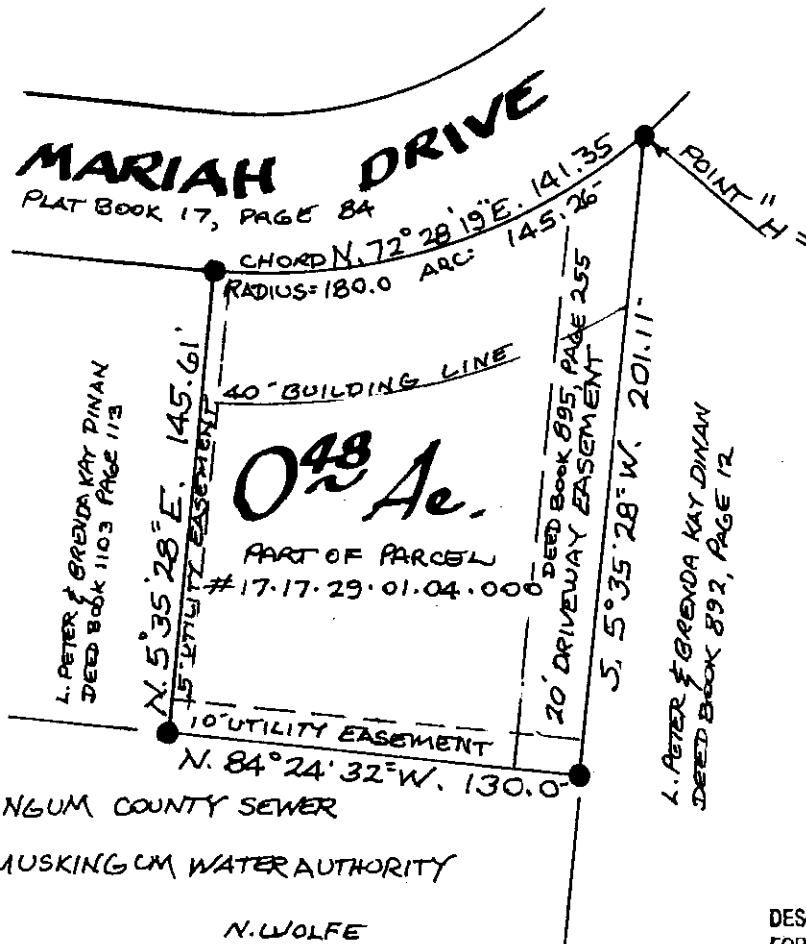 MARIAH DRIVE
PLAT BOOK 17, PAGE 84
CHORD N. 72° 28' 19" E. 141.35
RADIUS = 180.0 ARC: 145.26'
POINT "H"
40' BUILDING LINE
L. PETER & BRENDA KAY DINAN
DEED BOOK 1103 PAGE 113
N. 5° 35' 28" E. 145.61'
5' UTILITY EASEMENT
0.48 Ac.
PART OF PARCEL
#17.17.29.01.04.000
DEED BOOK 895, PAGE 255
20' DRIVEWAY EASEMENT
S. 5° 35' 28" W. 201.11'
L. PETER & BRENDA KAY DINAN
DEED BOOK 892, PAGE 12
10' UTILITY EASEMENT
N. 84° 24' 32" W. 130.0'
NGUM COUNTY SEWER
MUSKINGUM WATER AUTHORITY
N. WOLFE
DES